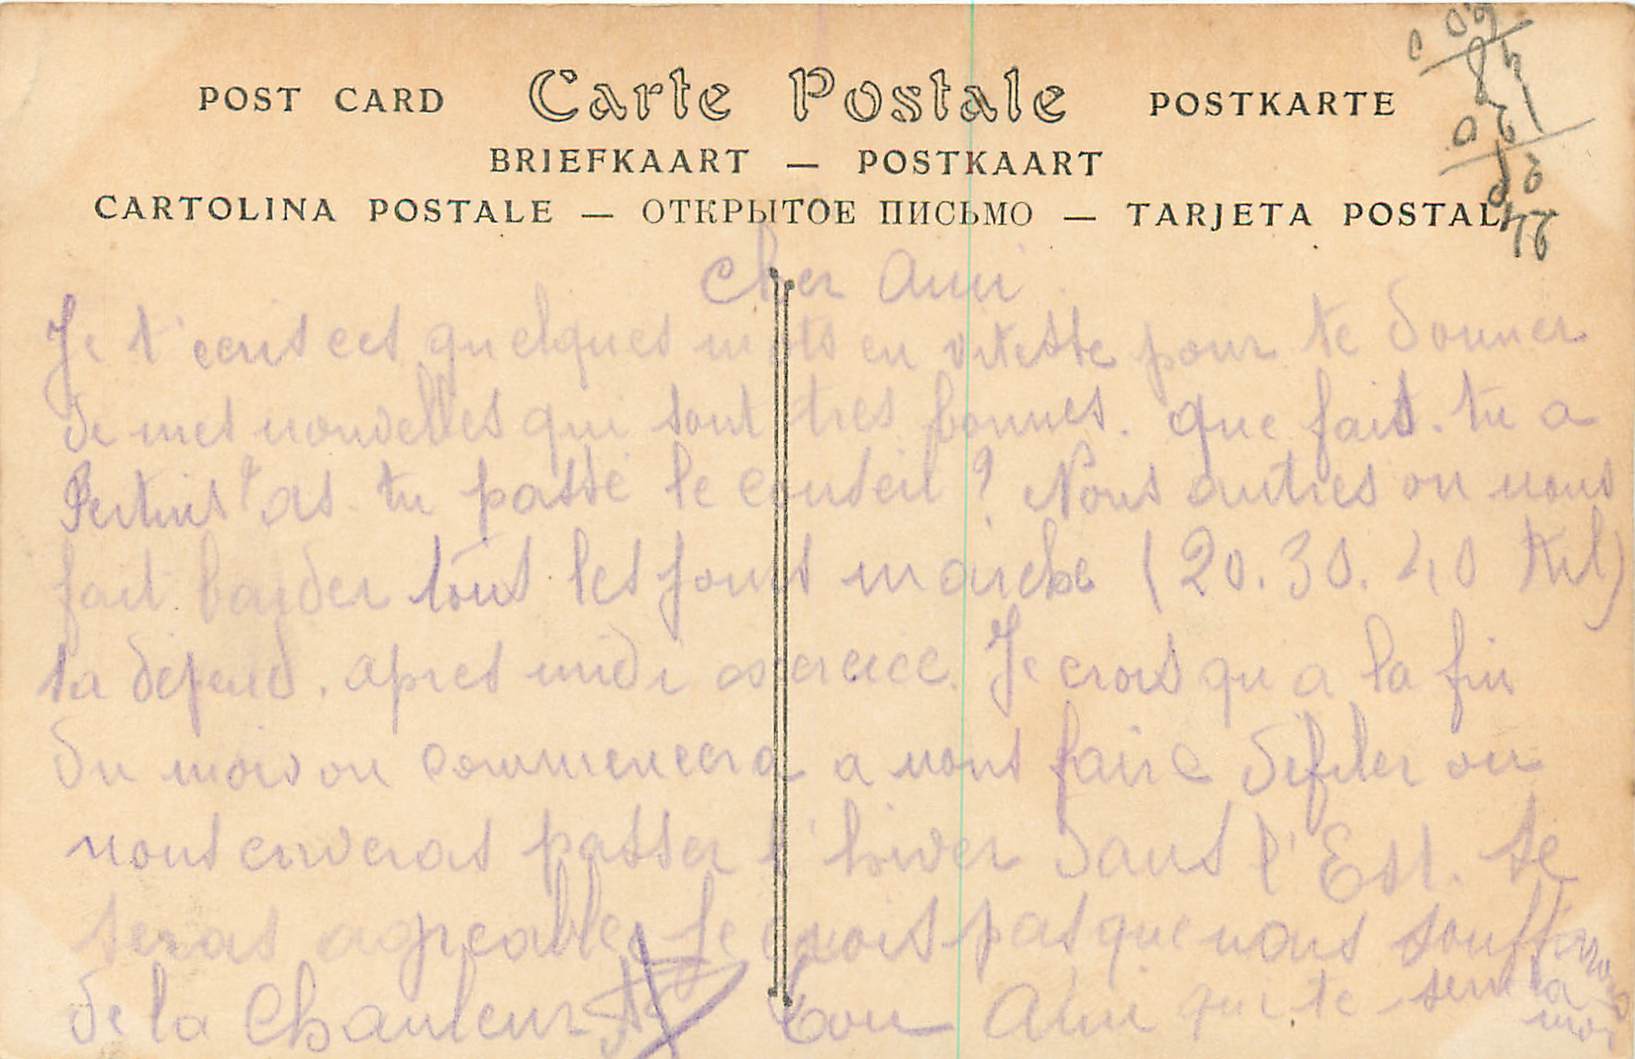 POST CARD Carte Postale POSTKARTE
BRIEFKAART — POSTKAART
CARTOLINA POSTALE — ОТКРЫТОЕ ПИСЬМО — TARJETA POSTAL
Cher Ami
Je t'ecris ces quelques mots en vitesse pour te donner
de mes nouvelles qui sont tres bonnes. que fais. tu a
Pertuis as. tu passé le conseil ? Nous autres on nous
fait barder tous les jours marche (20. 30. 40 Kil)
sa depend. apres midi exercice. Je crois qu a la fin
du mois on commencera a nous faire defiler on
nous enveras passer l'hiver dans l'Est. se
seras agreable, je crois pas que nous souffrirons
de la Chauleur Ton Ami qui te serre la
mai